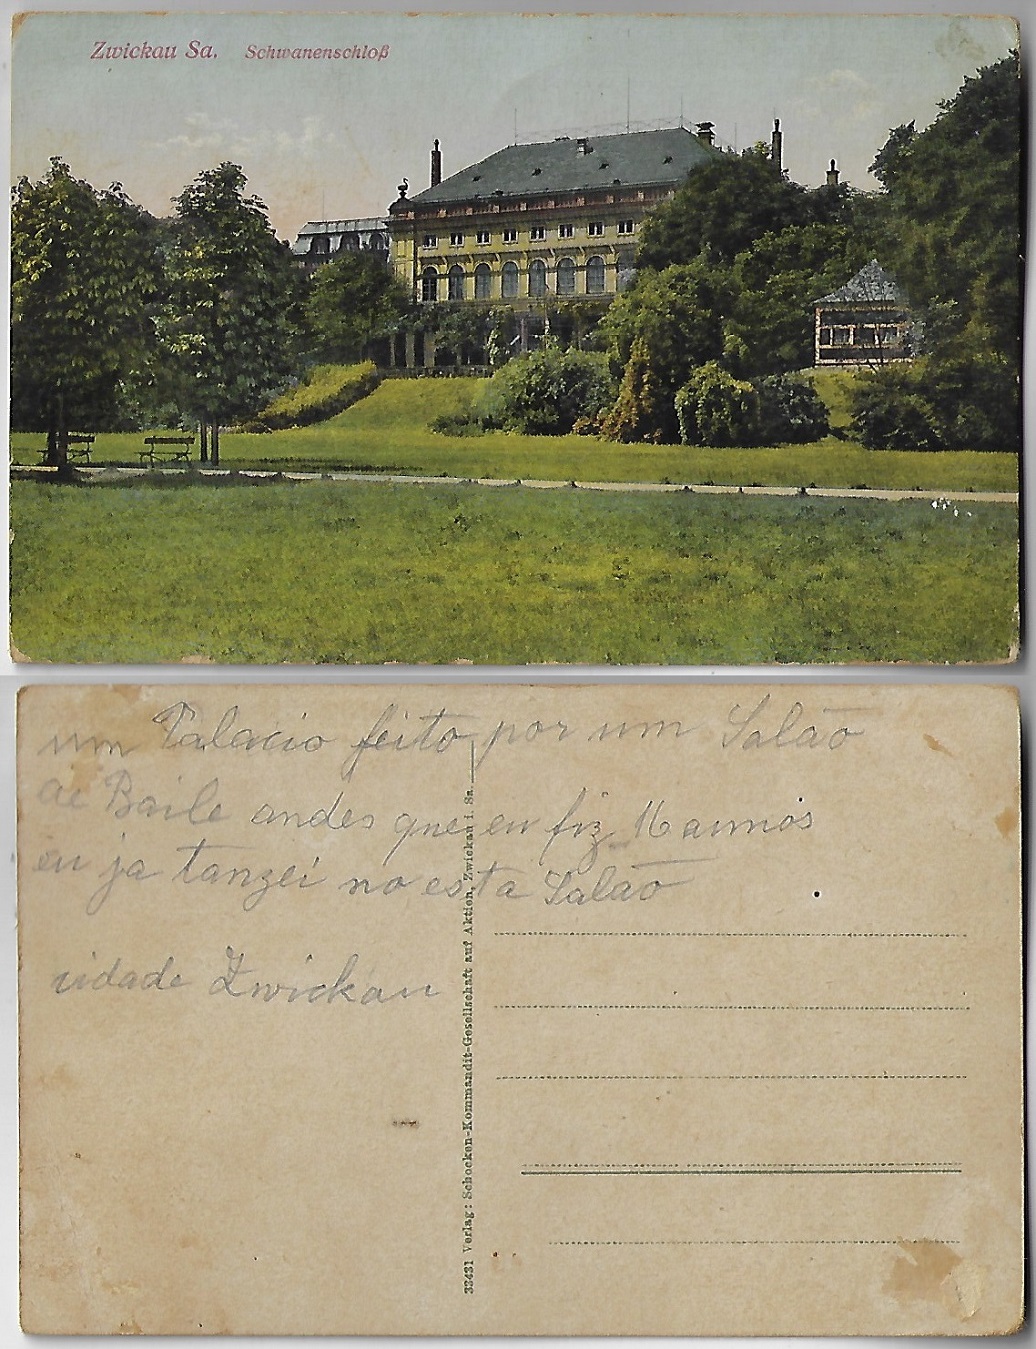 Zwickau Sa. Schwanenschloß
um Palacio feito por um Salão
de Baile andes que eu fiz 16 annos
eu ja tanzei no esta Salão
cidade Zwickau
33431 Verlag: Schocken-Kommandit-Gesellschaft auf Aktien, Zwickau i. Sa.